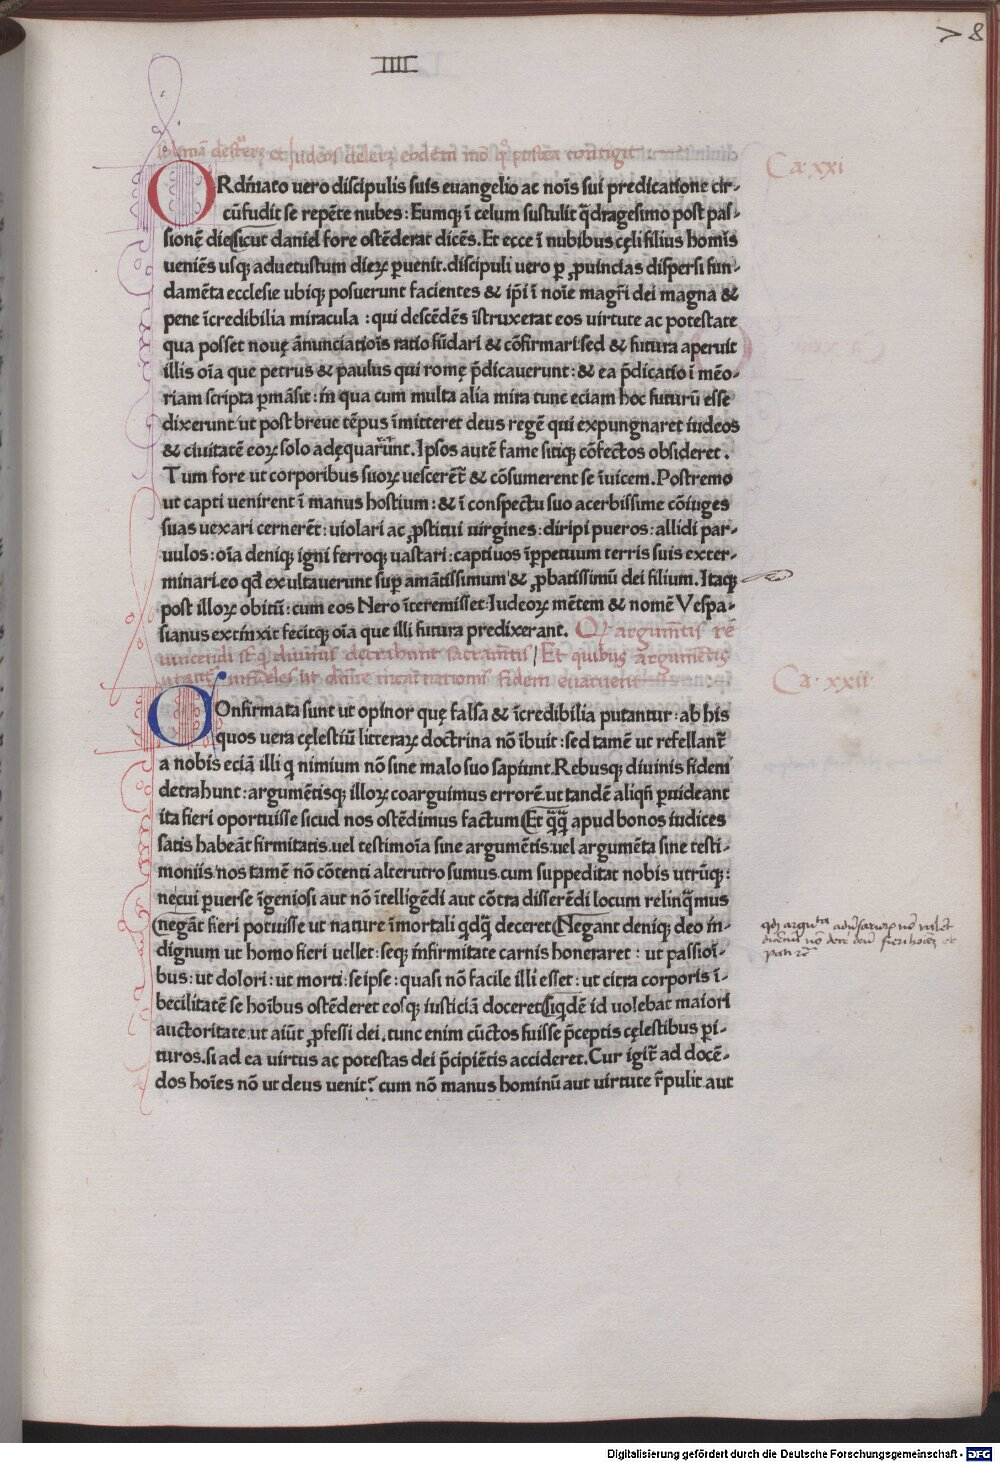 IIII
78
Ca. xxi
ORdinato uero discipulis suis euangelio ac noīs sui predicatione cir-
cūfudit se repēte nubes : Eumq; ī celum sustulit q̄dragesimo post pas-
sionē die sicut daniel fore ostēderat dicēs. Et ecce ī nubibus cęli filius homīs
ueniēs usq; ad uetustum dieꝝ ꝑuenit. discipuli uero ꝑ ꝓuincias dispersi fun-
damēta ecclesie ubiq; posuerunt facientes & ip̄i ī noīe magr̄i dei magna &
pene īcredibilia miracula : qui descēdēs īstruxerat eos uirtute ac potestate
qua posset nouę ānunciatiōis ratio fūdari & cōfirmari. sed & futura aperuit
illis oīa que petrus & paulus qui romę p̄dicauerunt : & ea p̄dicatio ī mēo-
riam scripta ꝑmāsit : ī qua cum multa alia mira tunc eciam hoc futurū esse
dixerunt ut post breue tēpus īmitteret deus regē qui expungnaret iudeos
& ciuitatē eoꝝ solo adęquarūnt. Ipsos autē fame sitiq; cōfectos obsideret .
Tum fore ut corporibus suoꝝ uescerēt̄ & cōsumerent se īuicem. Postremo
ut capti uenirent ī manus hostium : & ī conspectu suo acerbissime cōiuges
suas uexari cernerēt : uiolari ac ꝓstitui uirgines : diripi pueros : allidi par-
uulos : oīa deniq; igni ferroq; uastari : captiuos īꝑpetuum terris suis exter-
minari. eo qd̄ exultauerunt suꝑ amātissimum & ꝓbatissimū dei filium. Itaq;
post illoꝝ obitū : cum eos Nero īteremisset : Iudeoꝝ mētem & nomē Vespa-
sianus extinxit fecitq; oīa que illi futura predixerant. Qz argumētis re
uincendi sūt q diuinis detrahunt sacramētis / Et quibus argumētis
Ca. xxii
COnfirmata sunt ut opinor quę falsa & īcredibilia putantur : ab his
quos uera cęlestiū litteraꝝ doctrina nō ībuit : sed tamē ut refellant̄
a nobis eciā illi q nimium nō sine malo suo sapiunt. Rebusq; diuinis fidem
detrahunt : argumētisq; illoꝝ coarguimus errorē. ut tandē aliqn̄ ꝑuideant
ita fieri oportuisse sicud nos ostēdimus factum Et q̄q̄ apud bonos iudices
satis habeāt firmitatis. uel testimoīa sine argumētis. uel argumēta sine testi-
moniis. nos tamē nō cōtenti alterutro sumus. cum suppeditat nobis utrūq; :
necui ꝑuerse īgeniosi aut nō ītelligēdi aut cōtra disserēdi locum relinq̄mus
negāt fieri potuisse ut nature īmortali qdq̄ deceret Negant deniq; deo in-
dignum ut homo fieri uellet : seq; infirmitate carnis honeraret : ut passioī-
bus : ut dolori : ut morti : se ipse : quasi nō facile illi esset : ut citra corporis ī-
becilitatē se hoībus ostēderet eosq; iusticiā doceret siqdē id uolebat maiori
auctoritate. ut aiūt ꝓfessi dei. tunc enim cūctos fuisse p̄ceptis cęlestibus ꝑi-
turos. si ad ea uirtus ac potestas dei p̄cipiētis accideret. Cur igit̄ ad docē-
dos hoīes nō ut deus uenit? cum nō manus hominū aut uirtute r̄pulit aut
Digitalisierung gefördert durch die Deutsche Forschungsgemeinschaft - DFG